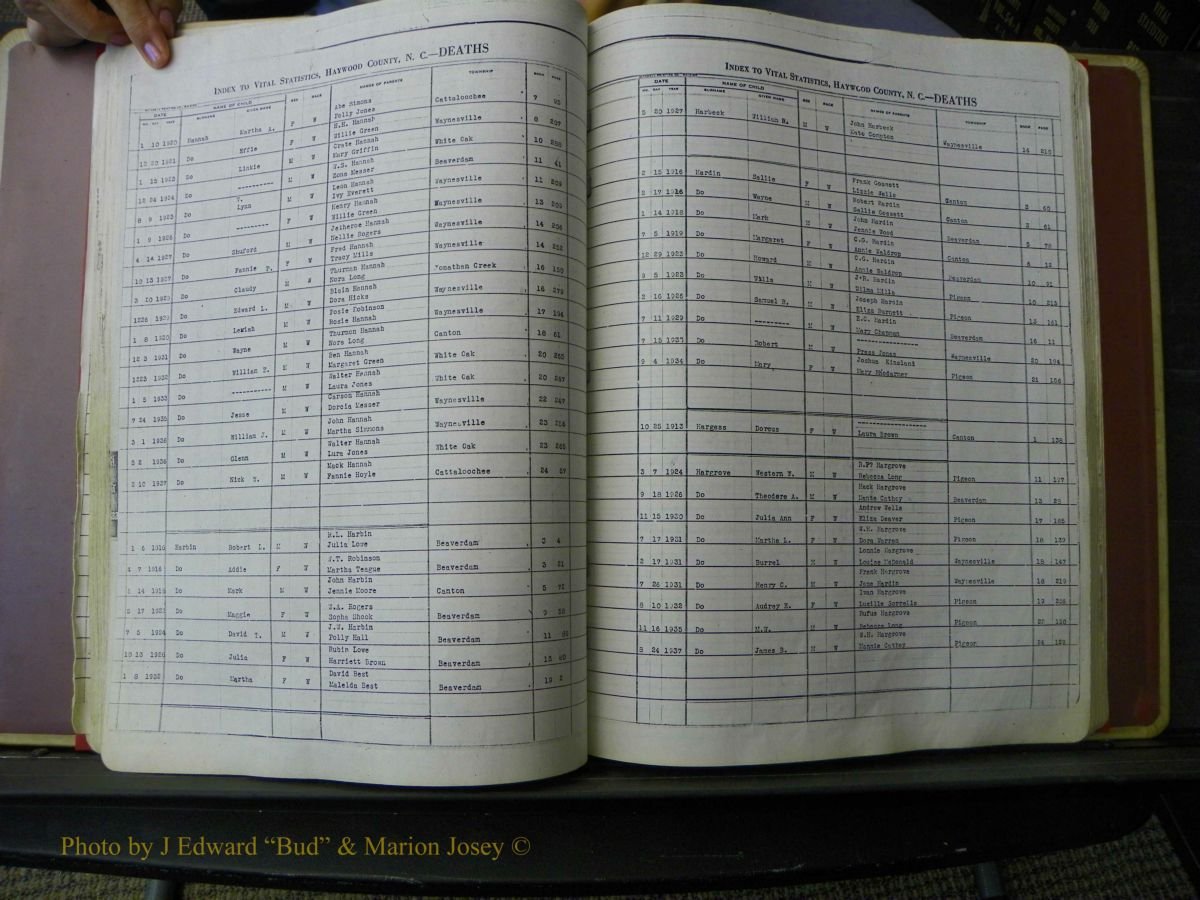 INDEX TO VITAL STATISTICS, HAYWOOD COUNTY, N. C.—DEATHS
DATE NAME OF CHILD SEX RACE NAMES OF PARENTS TOWNSHIP BOOK PAGE
MO. DAY YEAR SURNAME GIVEN NAME
Abe Simons
1 10 1920 Hannah Martha A. F W Polly Jones Cattaloochee 7
H.H. Hannah
12 20 1921 Do Effie F W Willie Green Waynesville 8 207
Crate Hannah
1 15 1923 Do Linkie M W Mary Griffin White Oak 10
W.G. Hannah
12 24 1924 Do ---------- M W Zona Messer Beaverdam 11 41
Leon Hannah
8 9 1925 Do Lynn M W Ivy Everett Waynesville 11
Henry Hannah
1 9 1926 Do ---------- F W Willie Green Waynesville 13
Jetheroe Hannah
4 14 1927 Do Shuford M W Nellie Rogers Waynesville 14 206
Fred Hannah
10 13 1927 Do Fannie F. F W Tracy Mills Waynesville 14 252
Thurman Hannah
3 10 1929 Do Claudy M W Nora Long Jonathan Creek 16 150
Blain Hannah
1226 1929 Do Edward L. M W Dora Hicks Waynesville 16 279
Posie Robinson
1 8 1930 Do Lewiah M W Rosie Hannah Waynesville 17 194
Thurmon Hannah
12 3 1931 Do Wayne M W Nora Long Canton 18 61
Ben Hannah
1223 1932 Do William E. M W Margaret Green White Oak 20 265
Walter Hannah
1 5 1933 Do ---------- M W Laura Jones White Oak 20 267
Carson Hannah
7 24 1935 Do Jesse M W Dorcia Messer Waynesville 22 247
John Hannah
3 1 1936 Do William J. M W Martha Simmons Waynesville 23
Walter Hannah
2 2 1936 Do Glenn M W Lura Jones White Oak 23 265
Mack Hannah
2 10 1937 Do Nick W. M W Fannie Hoyle Cattaloochee 24 57
R.L. Harbin
1 6 1916 Harbin Robert L. M W Julia Lowe Beaverdam 3 4
J.T. Robinson
4 7 1916 Do Addie F W Martha Teague Beaverdam 3 21
John Harbin
1 14 1918 Do Mark M W Jennie Moore Canton 5 72
W.A. Rogers
2 17 1922 Do Maggie F W Sopha Shook Beaverdam 9
J.W. Harbin
7 5 1924 Do David T. M W Polly Hall Beaverdam 11
Rubin Love
10 13 1926 Do Julia F W Harriett Brown Beaverdam 13 60
David Best
1 8 1932 Do Martha F W Maleida Best Beaverdam 19 2
INDEX TO VITAL STATISTICS, HAYWOOD COUNTY, N. C.—DEATHS
DATE NAME OF CHILD SEX RACE NAMES OF PARENTS TOWNSHIP BOOK PAGE
MO. DAY YEAR SURNAME GIVEN NAME
John Harbeck
5 20 1927 Harbeck William R. M W Kate Congton Waynesville 14 210
Frank Gossett
2 15 1916 Hardin Sallie F W Lizzie Wells Canton 3 60
Robert Hardin
2 17 1916 Do Wayne M W Sallie Gossett Canton 3 61
John Hardin
1 14 1918 Do Mark M W Jennie Wood Beaverdam 5 78
C.G. Hardin
7 5 1919 Do Margaret F W Annie Waldrop Canton 6 12
C.G. Hardin
12 29 1923 Do Howard M W Annie Waldrop Beaverdam 10 91
J.R. Hardin
8 5 1923 Do Willa M W Wilma Mills Pigeon 10 213
Joseph Hardin
2 16 1926 Do Samuel R. M W Eliza Burnett Pigeon 13 161
E.C. Hardin
7 11 1929 Do --------- M W Mary Chapman Beaverdam 16 11
---------------
7 15 1933 Do Robert M W Press Jones Waynesville 20 194
Joshua Kinsland
9 4 1934 Do Mary F W Mary McGarner Pigeon 21 166
---------------
10 25 1913 Hargess Dorcus F W Laura Brown Canton 1 138
R.P? Hargrove
3 7 1924 Hargrove Western W. M W Rebecca Long Pigeon 11 197
Mack Hargrove
9 18 1926 Do Theodore A. M W Dante Cathey Beaverdam 13 28
Andrew Wells
11 15 1930 Do Julia Ann F W Eliza Deaver Pigeon 17 165
W.H. Hargrove
7 17 1931 Do Martha L. F W Dora Warren Pigeon 18 139
Lonnie Hargrove
2 17 1931 Do Burrel M W Louise McDonald Waynesville 18 147
Frank Hargrove
7 26 1931 Do Henry C. M W Jane Hardin Waynesville 18 219
Ivan Hargrove
8 10 1932 Do Audrey E. F W Lucille Sorrells Pigeon 19
Rufus Hargrove
11 16 1935 Do M.W. M W Rebecca Long Pigeon 22
W.H. Hargrove
8 24 1937 Do James B. M W Nannie Cathey Pigeon 24
Photo by J Edward “Bud” & Marion Josey ©